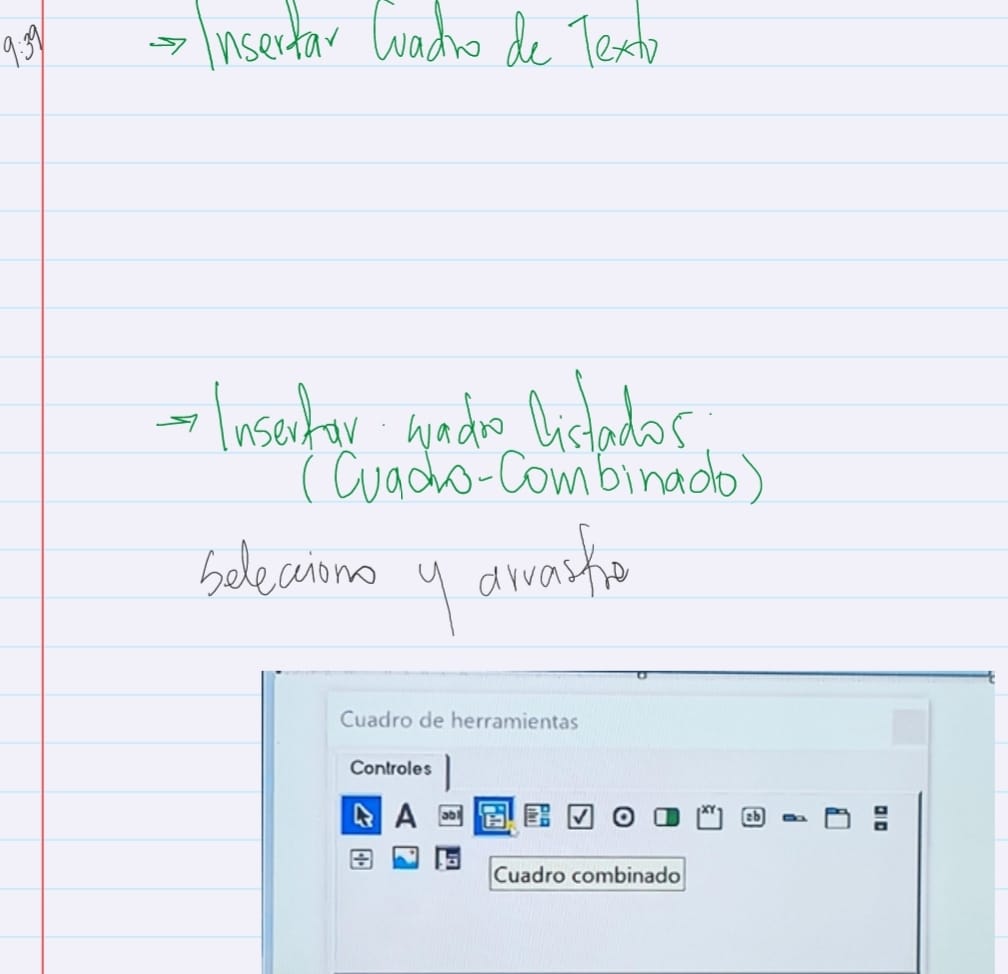 9:39
→ Insertar Cuadro de Texto
→ Insertar cuadro listados
(Cuadro-Combinado)
Selecciono y arrastro
Cuadro de herramientas
Controles
A ab| XY ab
Cuadro combinado